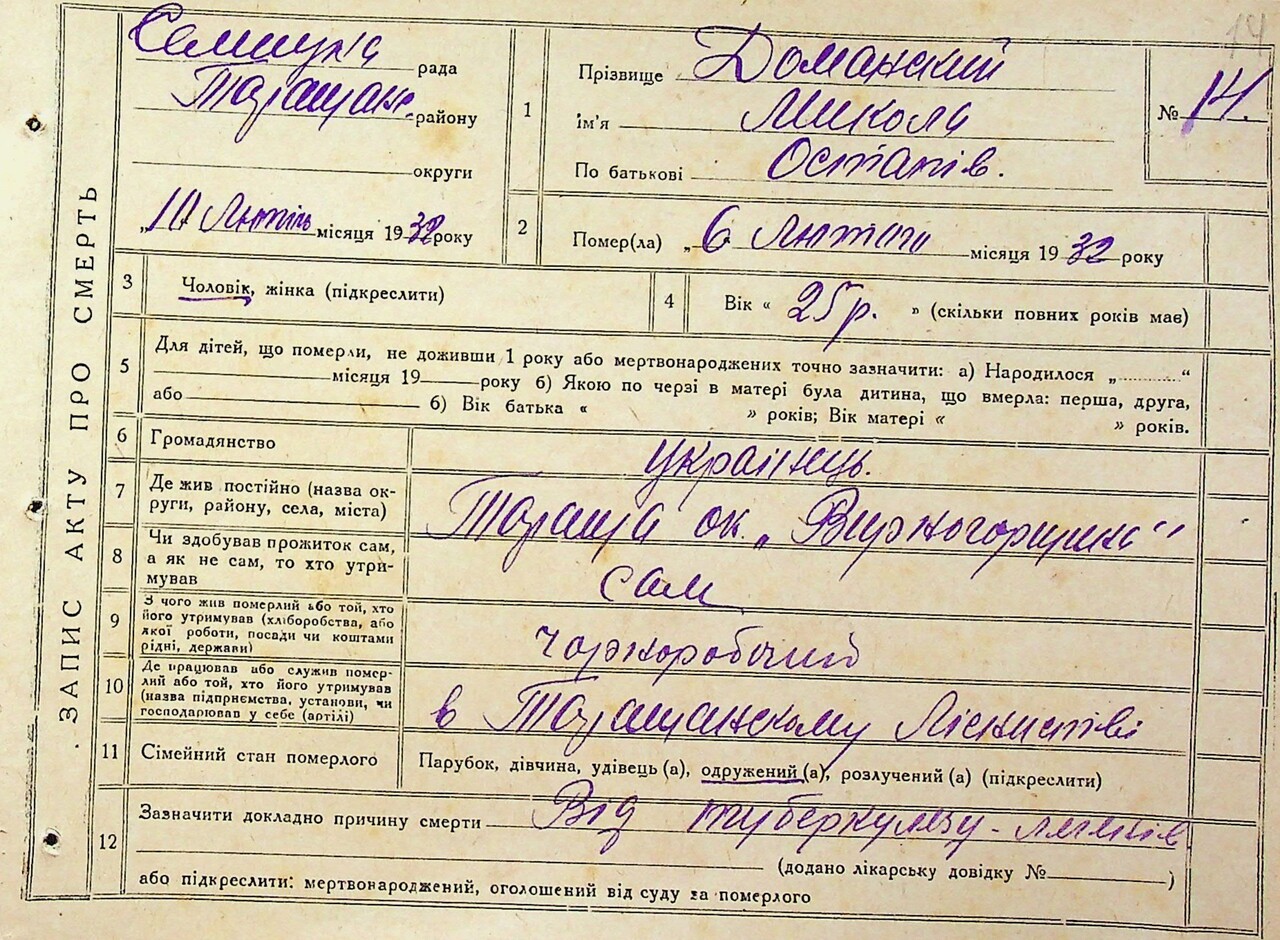 14
ЗАПИС АКТУ ПРО СМЕРТЬ
рада
Таращан. району
округи
„10 Лютня місяця 1932 року
1
Прізвище Доманский
ім'я Микола
По батькові Остапів.
№ 14.
2
Помер(ла) „6 Лютаги місяця 1932 року
3
Чоловік, жінка (підкреслити)
4
Вік « 25 р. » (скільки повних років мав)
5
Для дітей, що померли, не доживши 1 року або мертвонароджених точно зазначити: а) Народилося „ “
місяця 19 року б) Якою по черзі в матері була дитина, що вмерла: перша, друга,
або б) Вік батька « » років; Вік матері « » років.
6
Громадянство
українець.
7
Де жив постійно (назва ок-
руги, району, села, міста)
Тараща ок.
8
Чи здобував прожиток сам,
а як не сам, то хто утри-
мував
сам
9
З чого жив померлий або той, хто
його утримував (хліборобства, або
якої роботи, посади чи коштами
рідні, держави)
чорноробочий
10
Де працював або служив помер-
лий або той, хто його утримував
(назва підприємства, установи, чи
господарював у себе (артілі)
в Таращанскому Лісництві
11
Сімейний стан померлого
Парубок, дівчина, удівець (а), одружений (а), розлучений (а) (підкреслити)
12
Зазначити докладно причину смерти Від туберкульзу - легенів
(додано лікарську довідку № )
або підкреслити: мертвонароджений, оголошений від суду за померлого